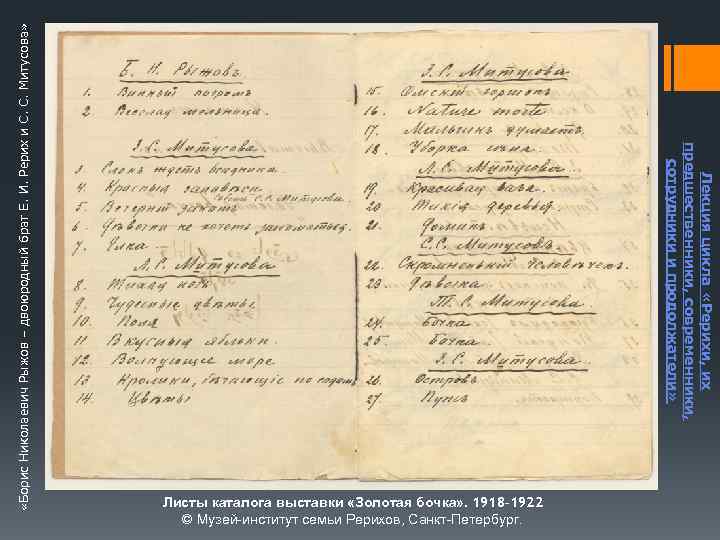 «Борис Николаевич Рыжов – двоюродный брат Е. И. Рерих и С. С. Митусова»
Б. Н. Рыжовъ
1. Винный погромъ
2 Веселая мельница.
З. С. Митусова
3. Слонъ ждетъ всадника.
4. Красный занавѣсъ
5. Вечерній закатъ
6. Дѣвочки не хотятъ
7. Ёлка
Л. С. Митусова
8. Тихая ночь
9. Чудесные цвѣты
10. Поля
11 Вкусныя яблоки.
12. Волнующее море
13 Кролики, бѣгающіе по
14. Цвѣты
З. С. Митусова
15. Омскій горшокъ
16. Nature morte
17. Мальчикъ думаетъ.
18. Уборка сѣна
Л. С. Митусова
19. Красивая ваза.
20 Тихія деревья.
21. Домикъ
С. С. Митусовъ
22. Скромненькій человѣчекъ.
23. Дѣвочка
Т. С. Митусова.
24. Бочка
25. Бочка.
З. С. Митусова.
26. Островъ
27.
Лекция цикла «Рерихи, их
предшественники, современники,
сотрудники и продолжатели»
Листы каталога выставки «Золотая бочка». 1918-1922
© Музей-институт семьи Рерихов, Санкт-Петербург.